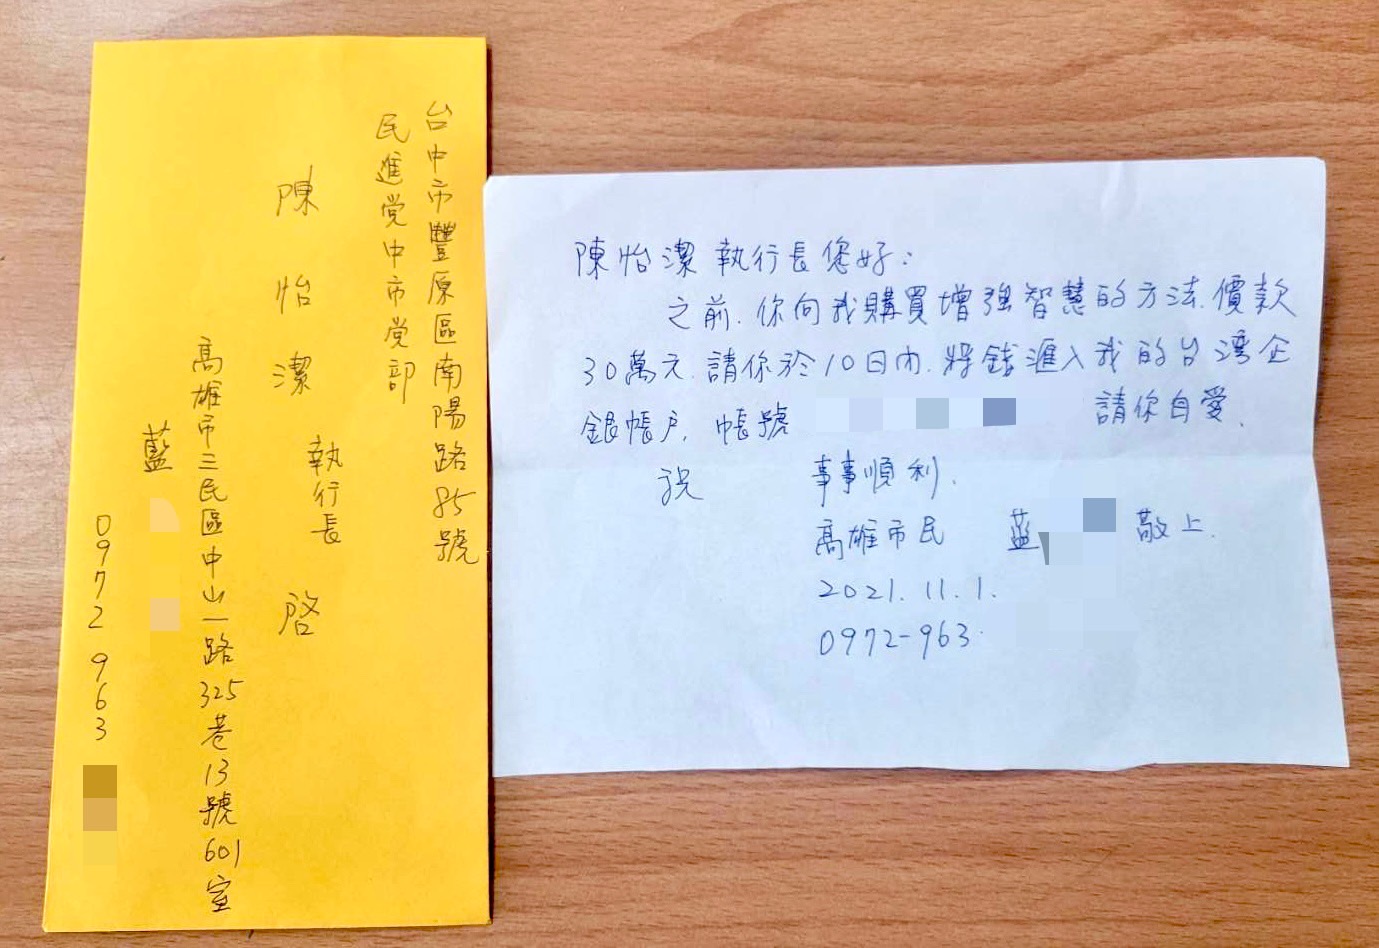 台中市豐原區南陽路85號
民進党中市党部
陳怡潔執行長啓
高雄市三民區中山一路325巷13號601室
藍
0972963
陳怡潔執行長您好：
之前.你向我購買增強智慧的方法.價款
30萬元.請你於10日內.將錢滙入我的台灣企
銀帳戶.帳號 請你自愛.
祝 事事順利.
高雄市民 藍 敬上.
2021.11.1.
0972-963